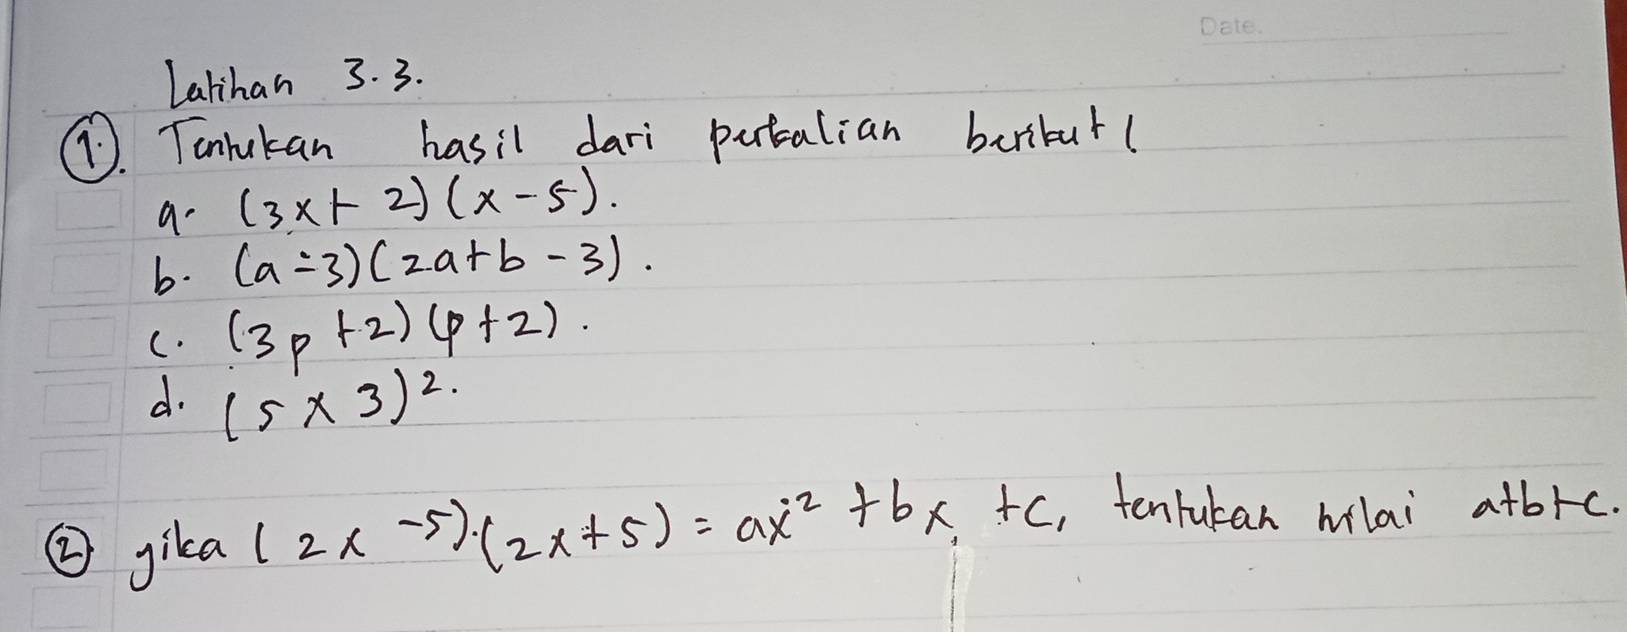 Date.
Latihan 3.3.
1. Tentukan hasil dari perkalian berikut!
a. (3x + 2) (x - 5).
b. (a - 3) (2a + b - 3).
c. (3p + 2) (p + 2).
d. (5 x 3)².
2 jika (2x - 5).(2x + 5) = ax² + bx + c, tentukan nilai a+b+c.